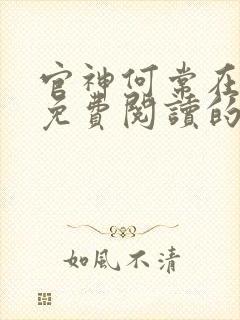 官神何常在
免費閱讀的
如風不清